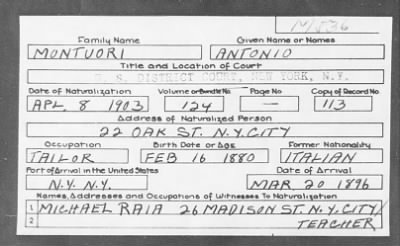 M/536
Family Name Given Name or Names
MONTUORI ANTONIO
Title and Location of Court
U. S. DISTRICT COURT, NEW YORK, N.Y.
Date of Naturalization Volume or Bundle No. Page No Copy of Record No.
APL. 8 1903 124 — 113
Address of Naturalized Person
22 OAK ST. N.Y. CITY
Occupation Birth Date or Age Former Nationality
TAILOR FEB 16 1880 ITALIAN
Port of Arrival in the United States Date of Arrival
N.Y. N.Y. MAR 20 1896
Names, Addresses and Occupations of Witnesses To Naturalization
1 MICHAEL RAIA 26 MADISON ST. N.Y. CITY/
2 TEACHER